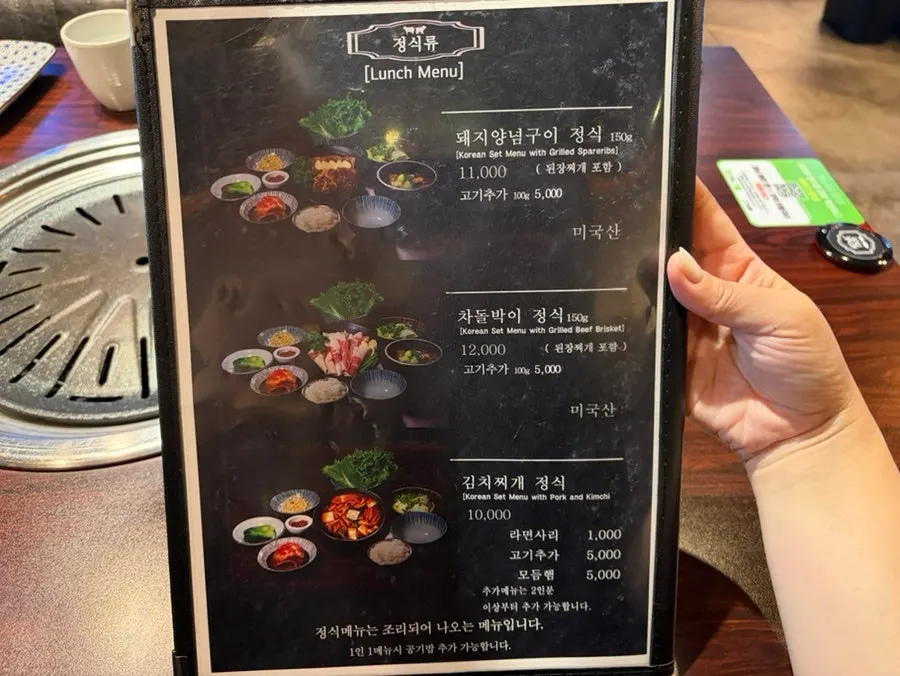 정식류
[Lunch Menu]
돼지양념구이 정식 150g
[Korean Set Menu with Grilled Spareribs]
11,000 ( 된장찌개 포함 )
고기추가 100g 5,000
미국산
차돌박이 정식 150g
[Korean Set Menu with Grilled Beef Brisket]
12,000 ( 된장찌개 포함 )
고기추가 100g 5,000
미국산
김치찌개 정식
[Korean Set Menu with Pork and Kimchi
10,000
라면사리 1,000
고기추가 5,000
모듬햄 5,000
추가메뉴는 2인분
이상부터 추가 가능합니다.
정식메뉴는 조리되어 나오는 메뉴입니다.
1인 1메뉴시 공기밥 추가 가능합니다.